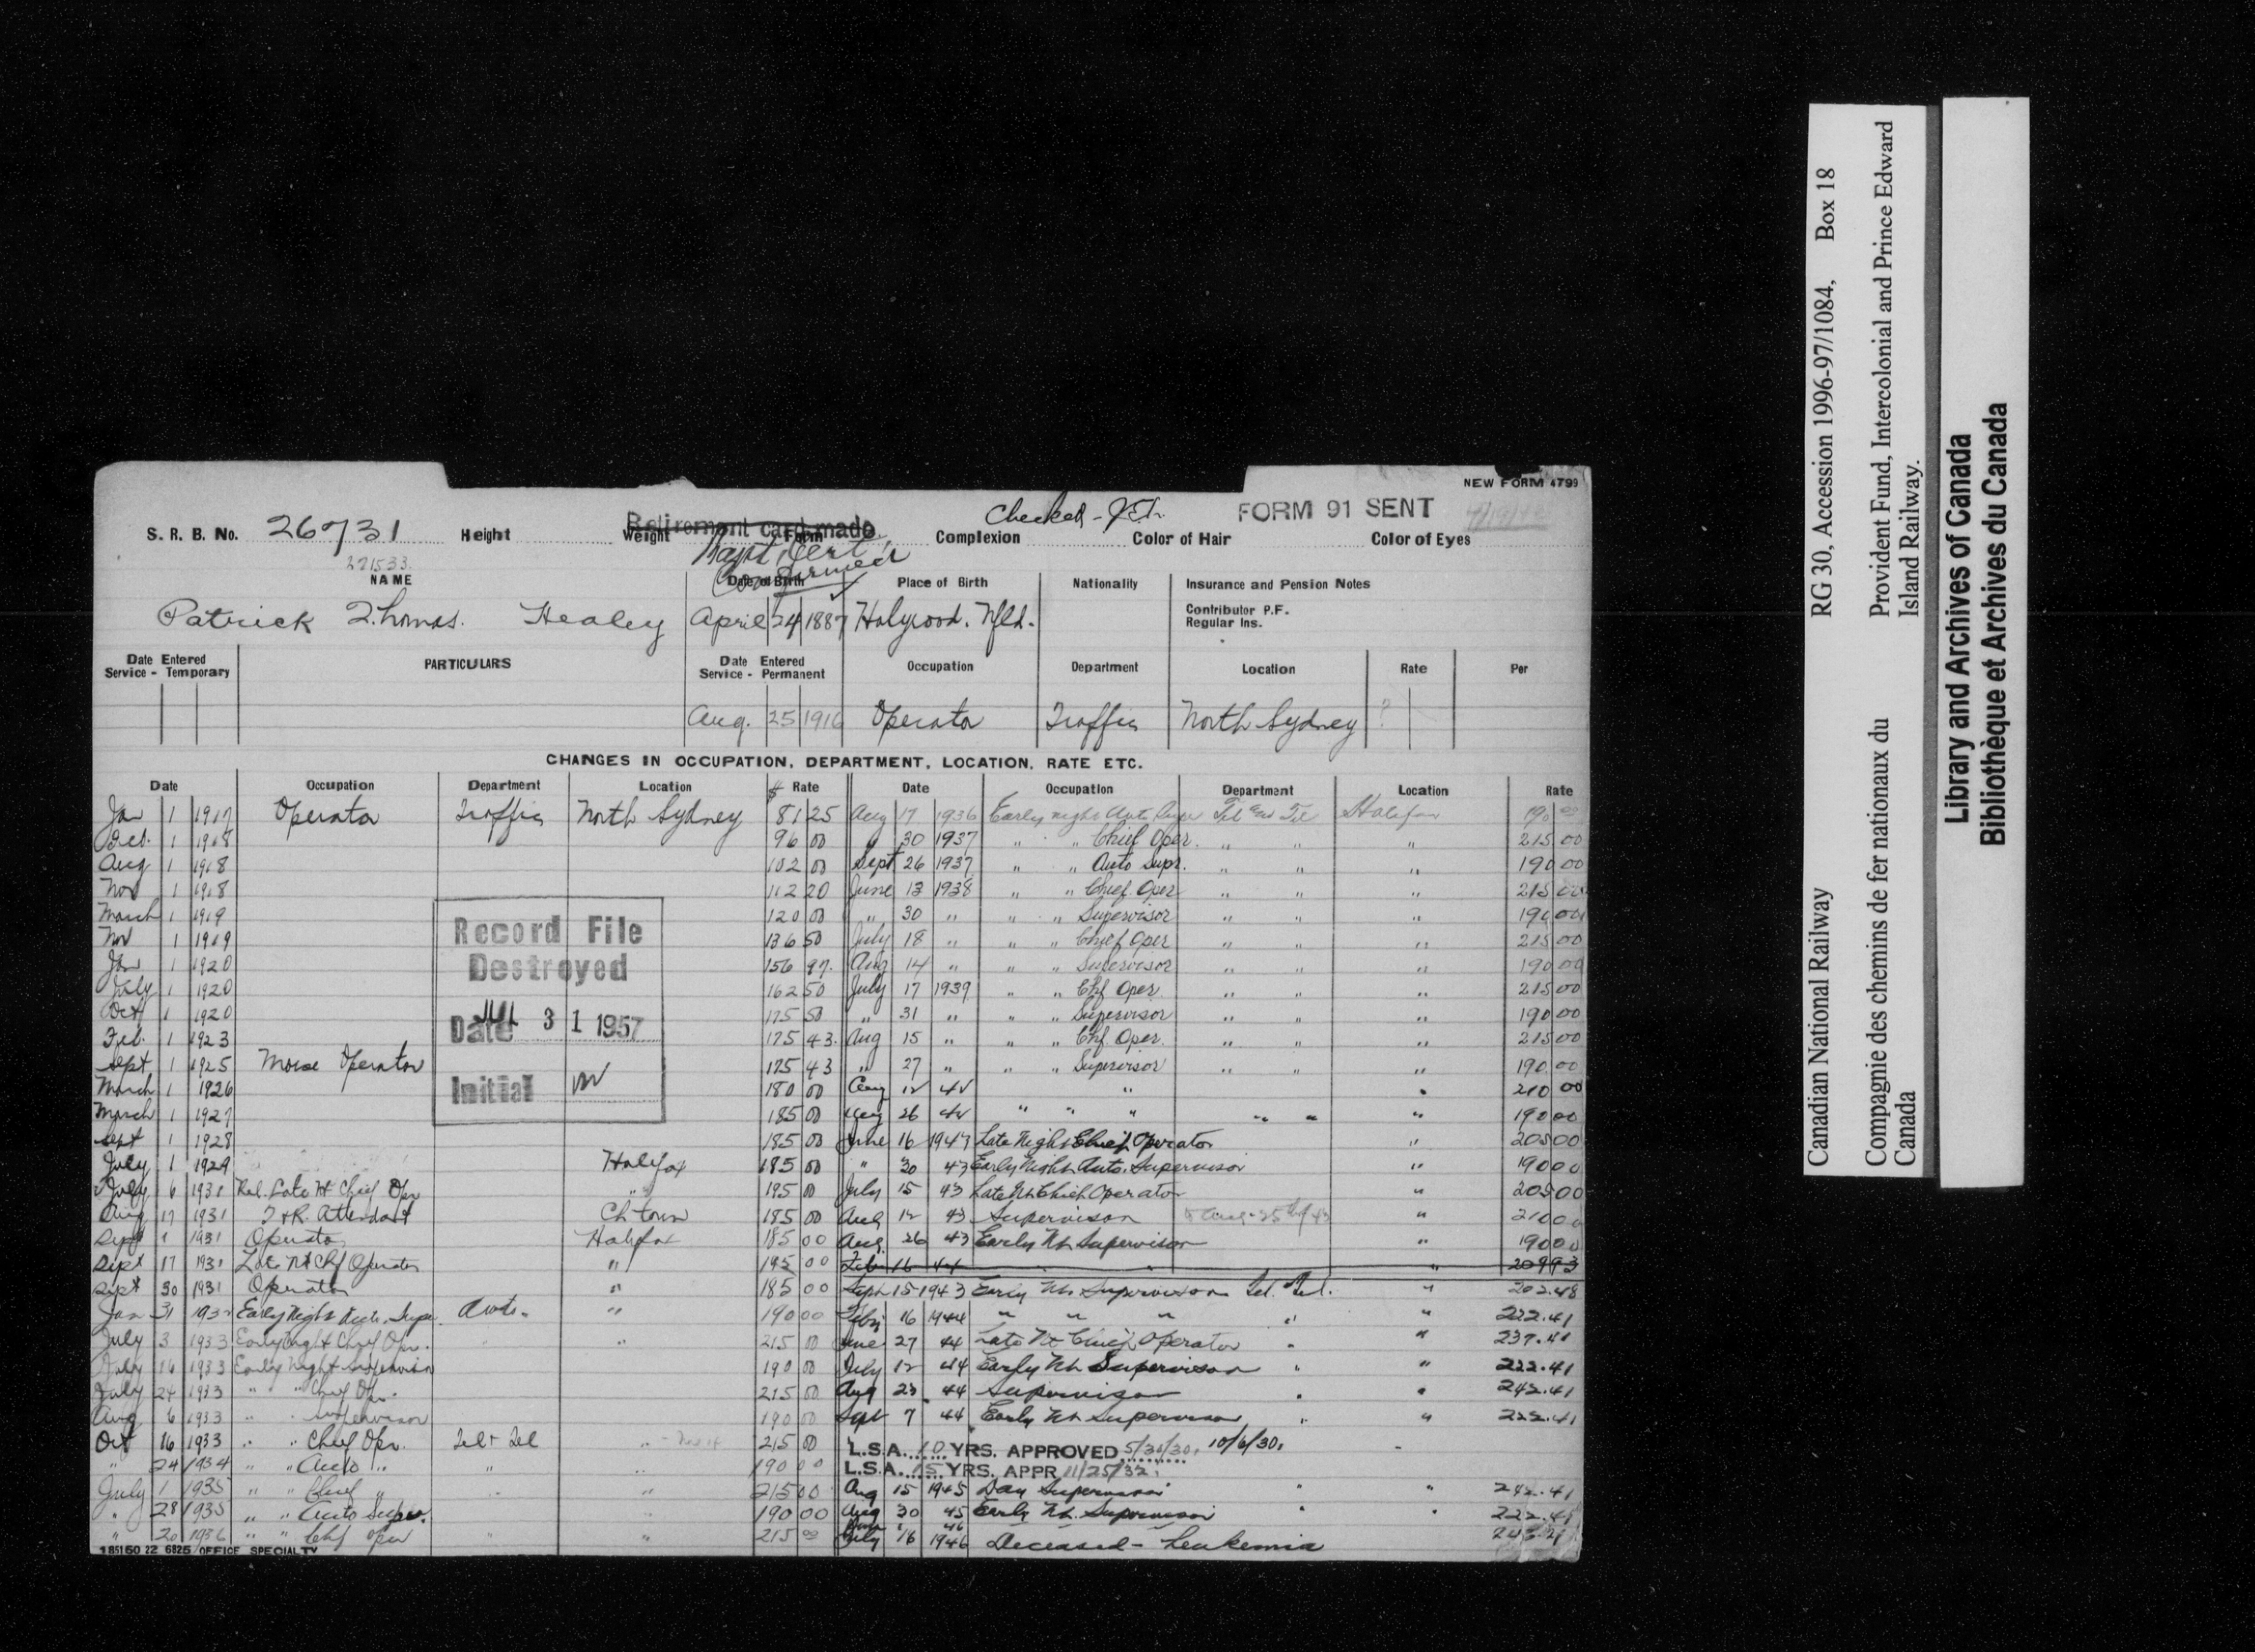 NEW FORM 4799
Checked - J.E.H.
FORM 91 SENT
Retirement card made
S. R. B. No. 26731 Height Weight Form Complexion Color of Hair Color of Eyes
271533
Bapt. Cert.
Confirmed ✓
NAME Date of Birth Place of Birth Nationality Insurance and Pension Notes
Patrick Thomas. Healey April 24 1887 Holyrood. Nfld. Contributor P.F.
Regular Ins.
Date Entered Service - Temporary PARTICULARS Date Entered Service - Permanent Occupation Department Location Rate Per
Aug. 25 1916 Operator Traffic North Sydney ?
CHANGES IN OCCUPATION, DEPARTMENT, LOCATION, RATE ETC.
Date Occupation Department Location $ Rate Date Occupation Department Location Rate
Jan 1 1917 Operator Traffic North Sydney 81 25 Aug 17 1936 Early night Auto Tel and Tel Halifax 190 00
Feb. 1 1918 96 00 " 30 1937 " " Chief Oper. " " " 215 00
Aug 1 1918 102 00 Sept 26 1937 " " Auto Supr. " " " 190 00
Nov 1 1918 112 20 June 13 1938 " " Chief Oper " " " 215 00
March 1 1919 120 00 " 30 " " " Supervisor " " " 190 00
Nov 1 1919 136 50 July 18 " " " Chief Oper " " " 215 00
Jan 1 1920 156 97 Aug 14 " " " Supervisor " " " 190 00
July 1 1920 162 50 July 17 1939 " " Chf Oper. " " " 215 00
Oct 1 1920 175 50 " 31 " " " Supervisor " " " 190 00
Feb. 1 1923 175 43 Aug 15 " " " Chf. Oper. " " " 215 00
Sept 1 1925 Morse Operator 175 43 " 27 " " " Supervisor " " " 190 00
March 1 1926 180 00 Aug 12 42 " " 210 00
March 1 1927 185 00 Aug 26 42 " " " " " " 190 00
Sept 1 1928 185 00 June 16 1943 Late Night Chief Operator " 205 00
July 1 1929 Halifax 185 00 " 30 43 Early Night Auto. Supervisor " 190 00
July 6 1931 Rel. Late Nt Chief Opr " 195 00 July 15 43 Late Nt Chief Operator " 205 00
Aug 17 1931 T & R. Attendant Ch town 185 00 Aug 12 43 Supervisor to Aug. 25th/43 " 210 00
Sept 1 1931 Operator Halifax 185 00 Aug. 26 43 Early Nt Supervisor " 190 00
Sept 17 1931 Late Nt Chf Operator " 195 00 Feb 16 44 " " 209 93
Sept 30 1931 Operator " 185 00 Sept 15 1943 Early Nt. Supervisor Tel. Tel. " 202.48
Jan 31 1932 Early Night Auto. Supr. Auto. " 190 00 Feby 16 1944 " " " " " 222.41
July 3 1933 Early Night Chief Opr. " " 215 00 June 27 44 Late Nt Chief Operator " " 237.41
July 16 1933 Early Night Supervisor 190 00 July 12 44 Early Nt Supervisor " " 222.41
July 24 1933 " " Chief Opr. 215 00 Aug 23 44 Supervisor " " 242.41
Aug 6 1933 " " Supervisor 190 00 Sept 7 44 Early Nt Supervisor " " 222.41
Oct 16 1933 " " Chief Opr. Tel & Tel " 215 00 L.S.A. 10 YRS. APPROVED 5/30/30. 10/6/30.
" 24 1934 " " Auto " " " 190 00 L.S.A. 15 YRS. APPR 11/25/32.
July 1 1935 " " Chief " " " 215 00 Aug 15 1945 Day Supervisor " " 242.41
" 28 1935 " " Auto Supr. " 190 00 Aug 30 45 Early Nt. Supervisor " " 222.41
" 20 1936 " " Chf oper " " 215 00 July 16 1946 Deceased - Leukemia
185150 22 6825 OFFICE SPECIALTY
Record File
Destroyed
Date JUL 31 1957
Initial
Canadian National Railway RG 30, Accession 1996-97/1084, Box 18
Compagnie des chemins de fer nationaux du Canada Provident Fund, Intercolonial and Prince Edward Island Railway.
Library and Archives of Canada
Bibliothèque et Archives du Canada